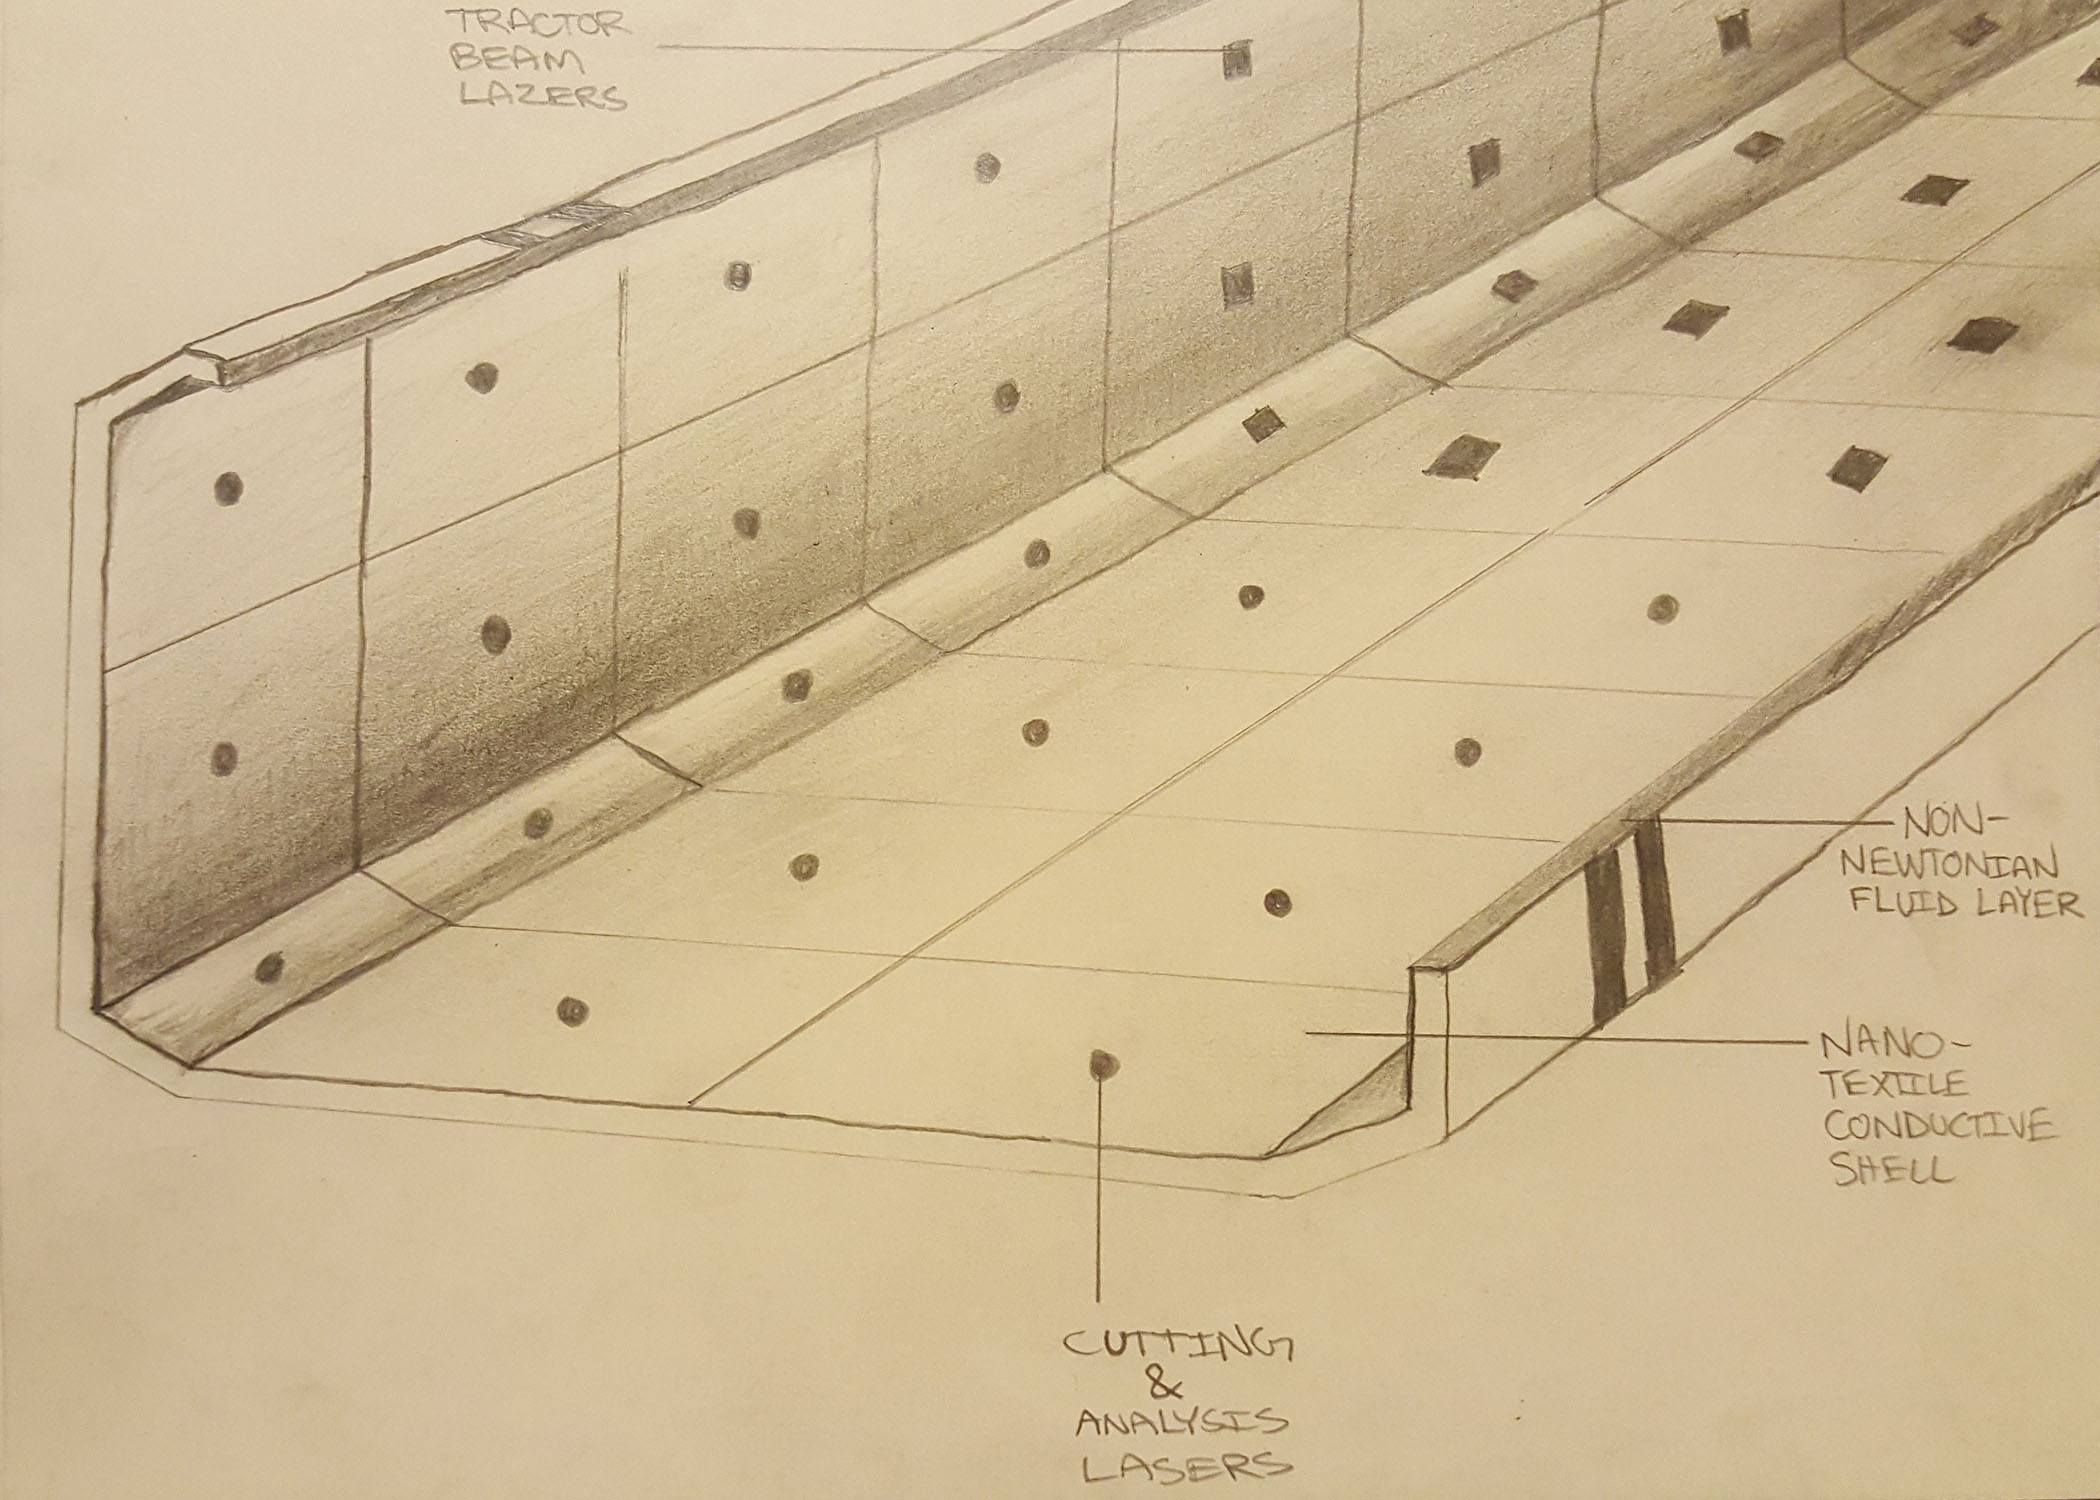 TRACTOR
BEAM
LAZERS
NON-
NEWTONIAN
FLUID LAYER
NANO-
TEXTILE
CONDUCTIVE
SHELL
CUTTING
&
ANALYSIS
LASERS